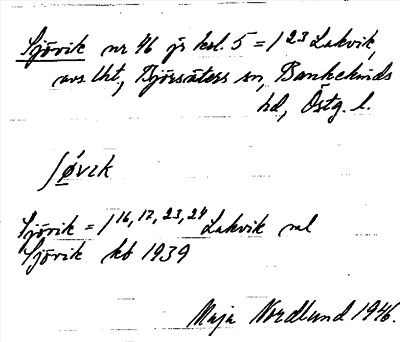 Sjövik nr 46 jr kbl. 5 = 1²³ Lakvik,
avs. lht., Björsäters sn, Bankekinds
hd, Östg. l.
Sjövik = 1¹⁶,¹⁷,²³,²⁴ Lakvik ml
Sjövik kb 1939
Maja Nordlund 1946.